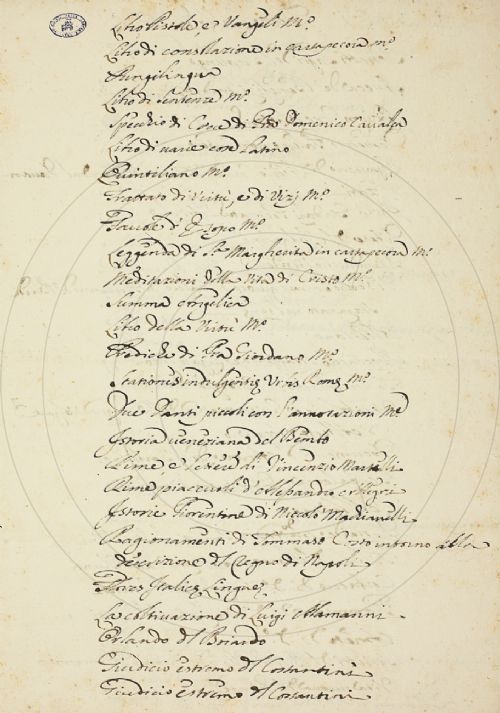 Libro Pistole e Vangeli Mo
Libro di consolazione in cartapecora mo
Pungilingua
Libro di sentenze Mo
Specchio di Croce di Fra Domenico Cavalca
Libro di varie cose Latino
Quintiliano Mo
Trattato di Virtù, e di Vizj Mo
Favole d'Esopo Mo
Leggenda di Sta Margherita in cartapecora Mo
Meditazioni della Vita di Cristo Mo
Summa Angelica
Libro della Virtù Mo
Prediche di Fra Giordano Mo
Stationes indulgentie Urbis Rome Mo
Due Danti piccoli con l'annotazioni Mo
Istoria veneziana del Bembo
Rime e Lettere di Vincenzio Martelli
Rime piacevoli d'Alessandro Allegri
Istorie Fiorentine di Niccolò Machiavelli
Ragionamenti di Tommaso Costo intorno alla
descrizione del Regno di Napoli
Flores Italice Lingue
La coltivazione di Luigi Alamanni
Orlando del Boiardo
Giudicio estremo del Costantini
Giudicio estremo del Costantini